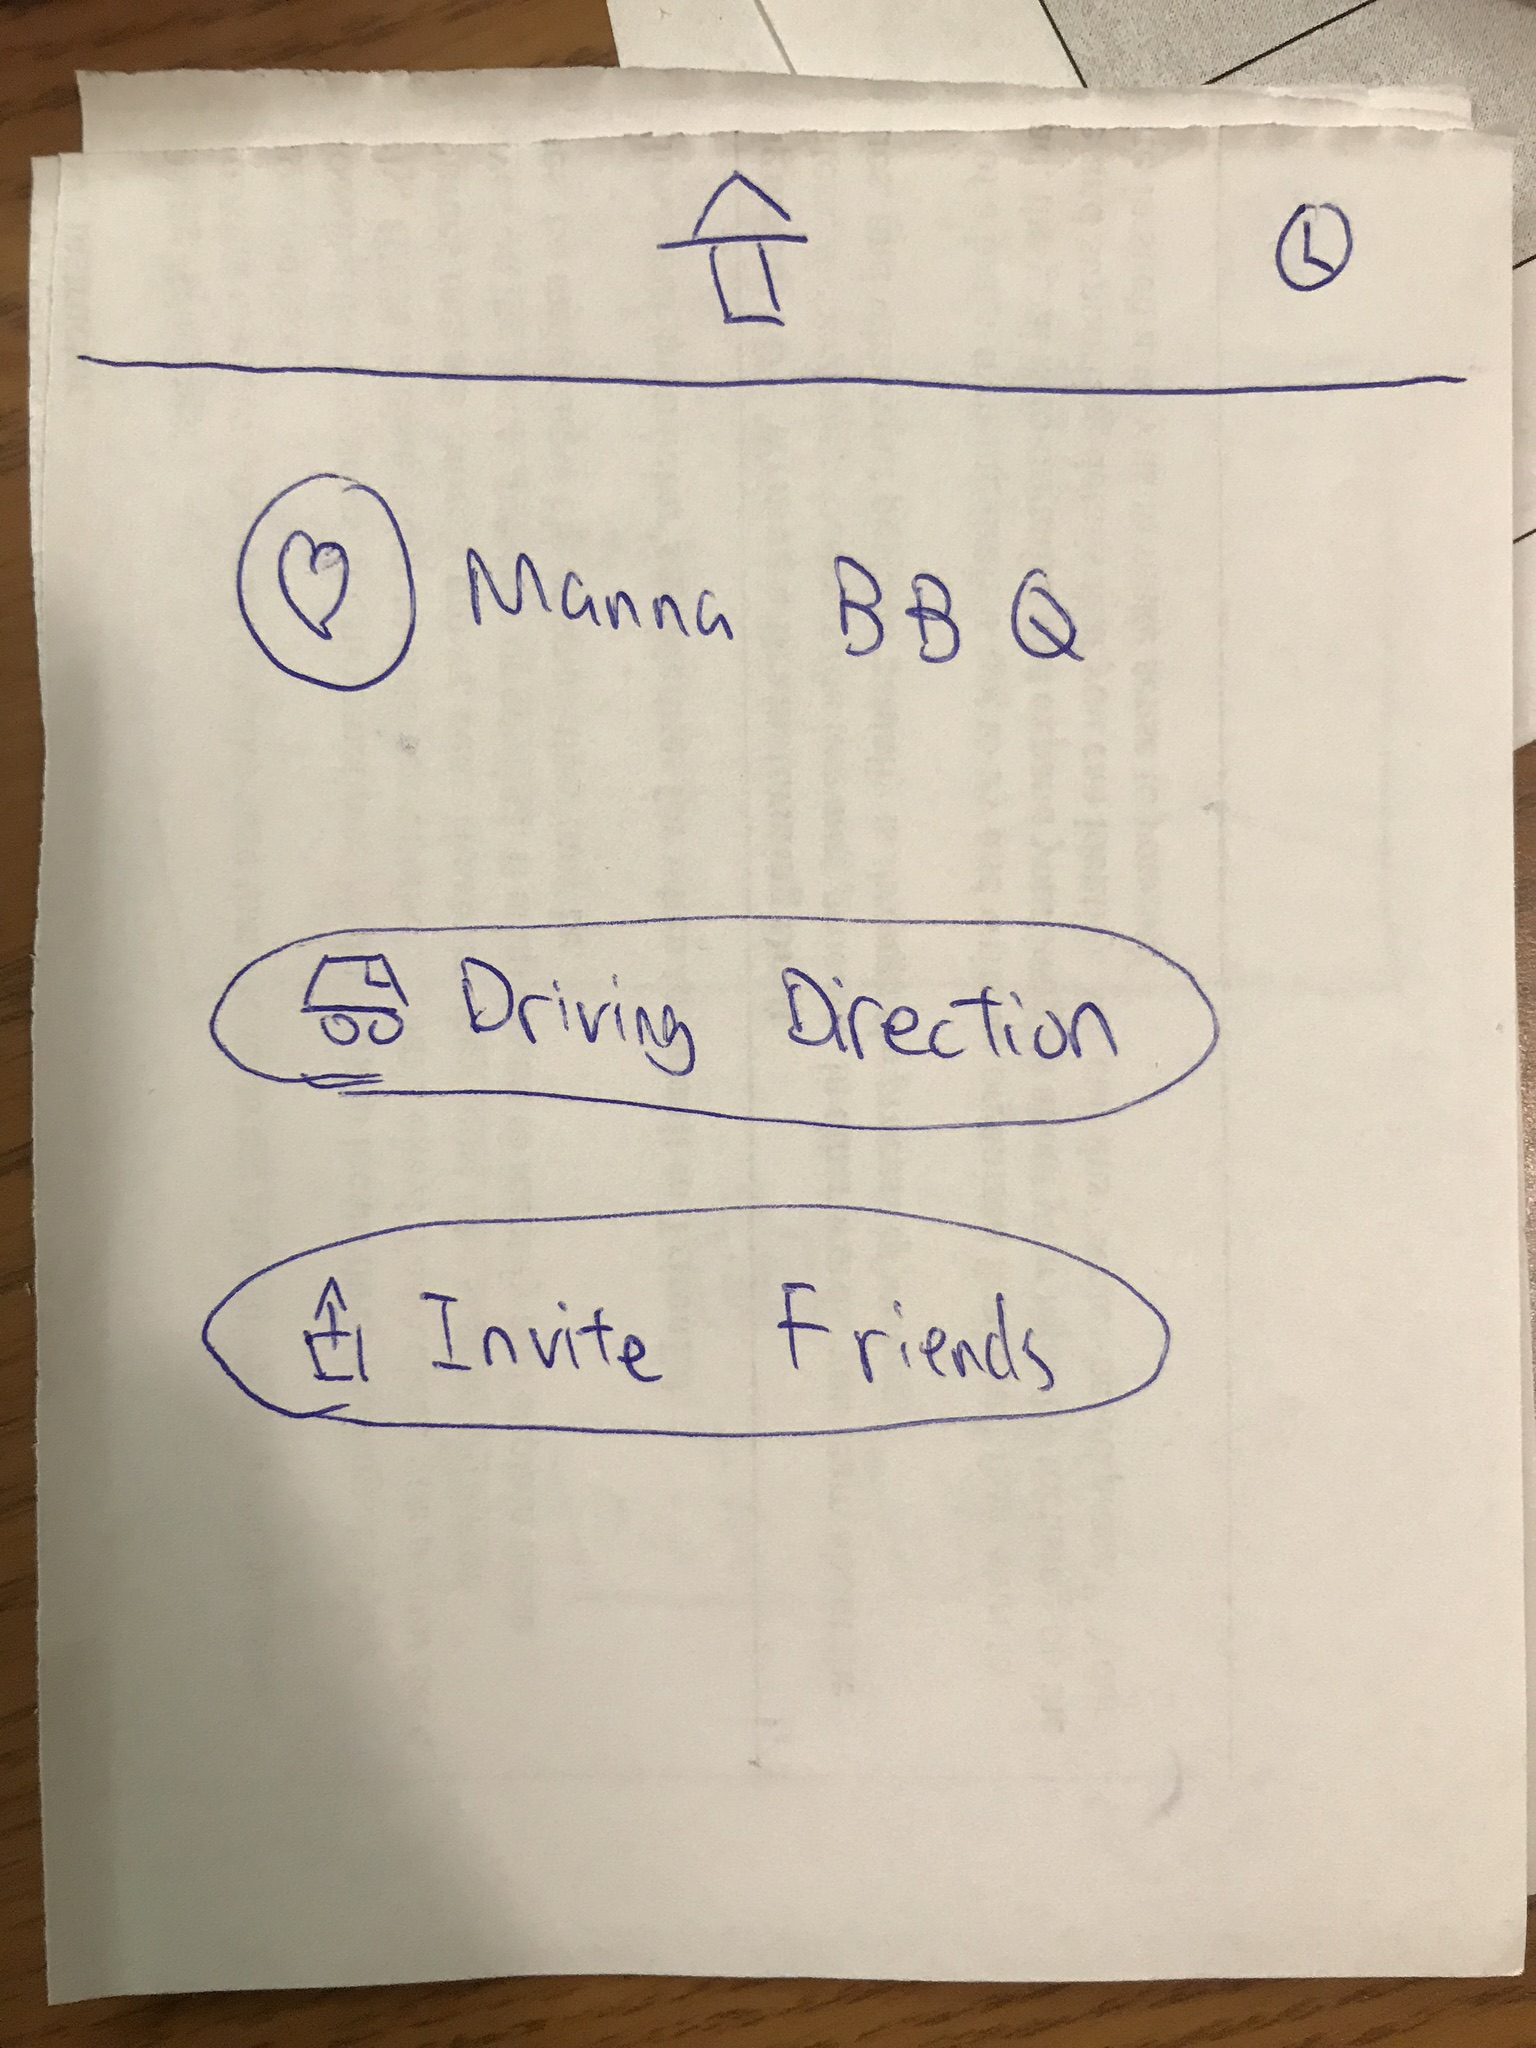 Manna BBQ
Driving Direction
Invite Friends